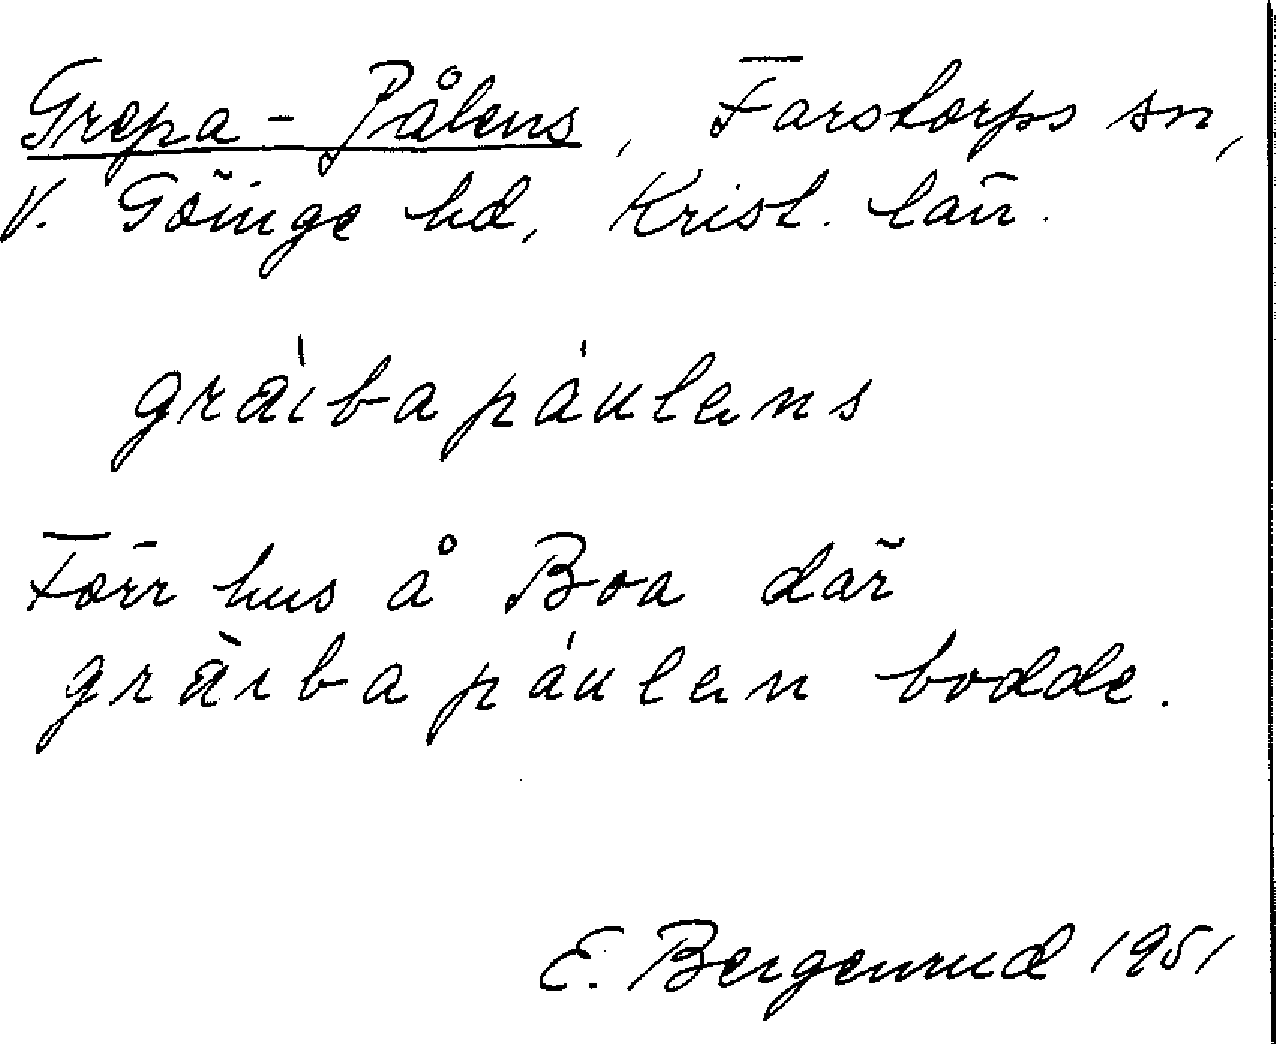 Grepa-Pålens, Farstorps sn,
V. Göinge hd, Krist. län.
gräibapáulens
Förr hus å Boa där
gräibapáulen bodde.
E. Bergenrud 1951